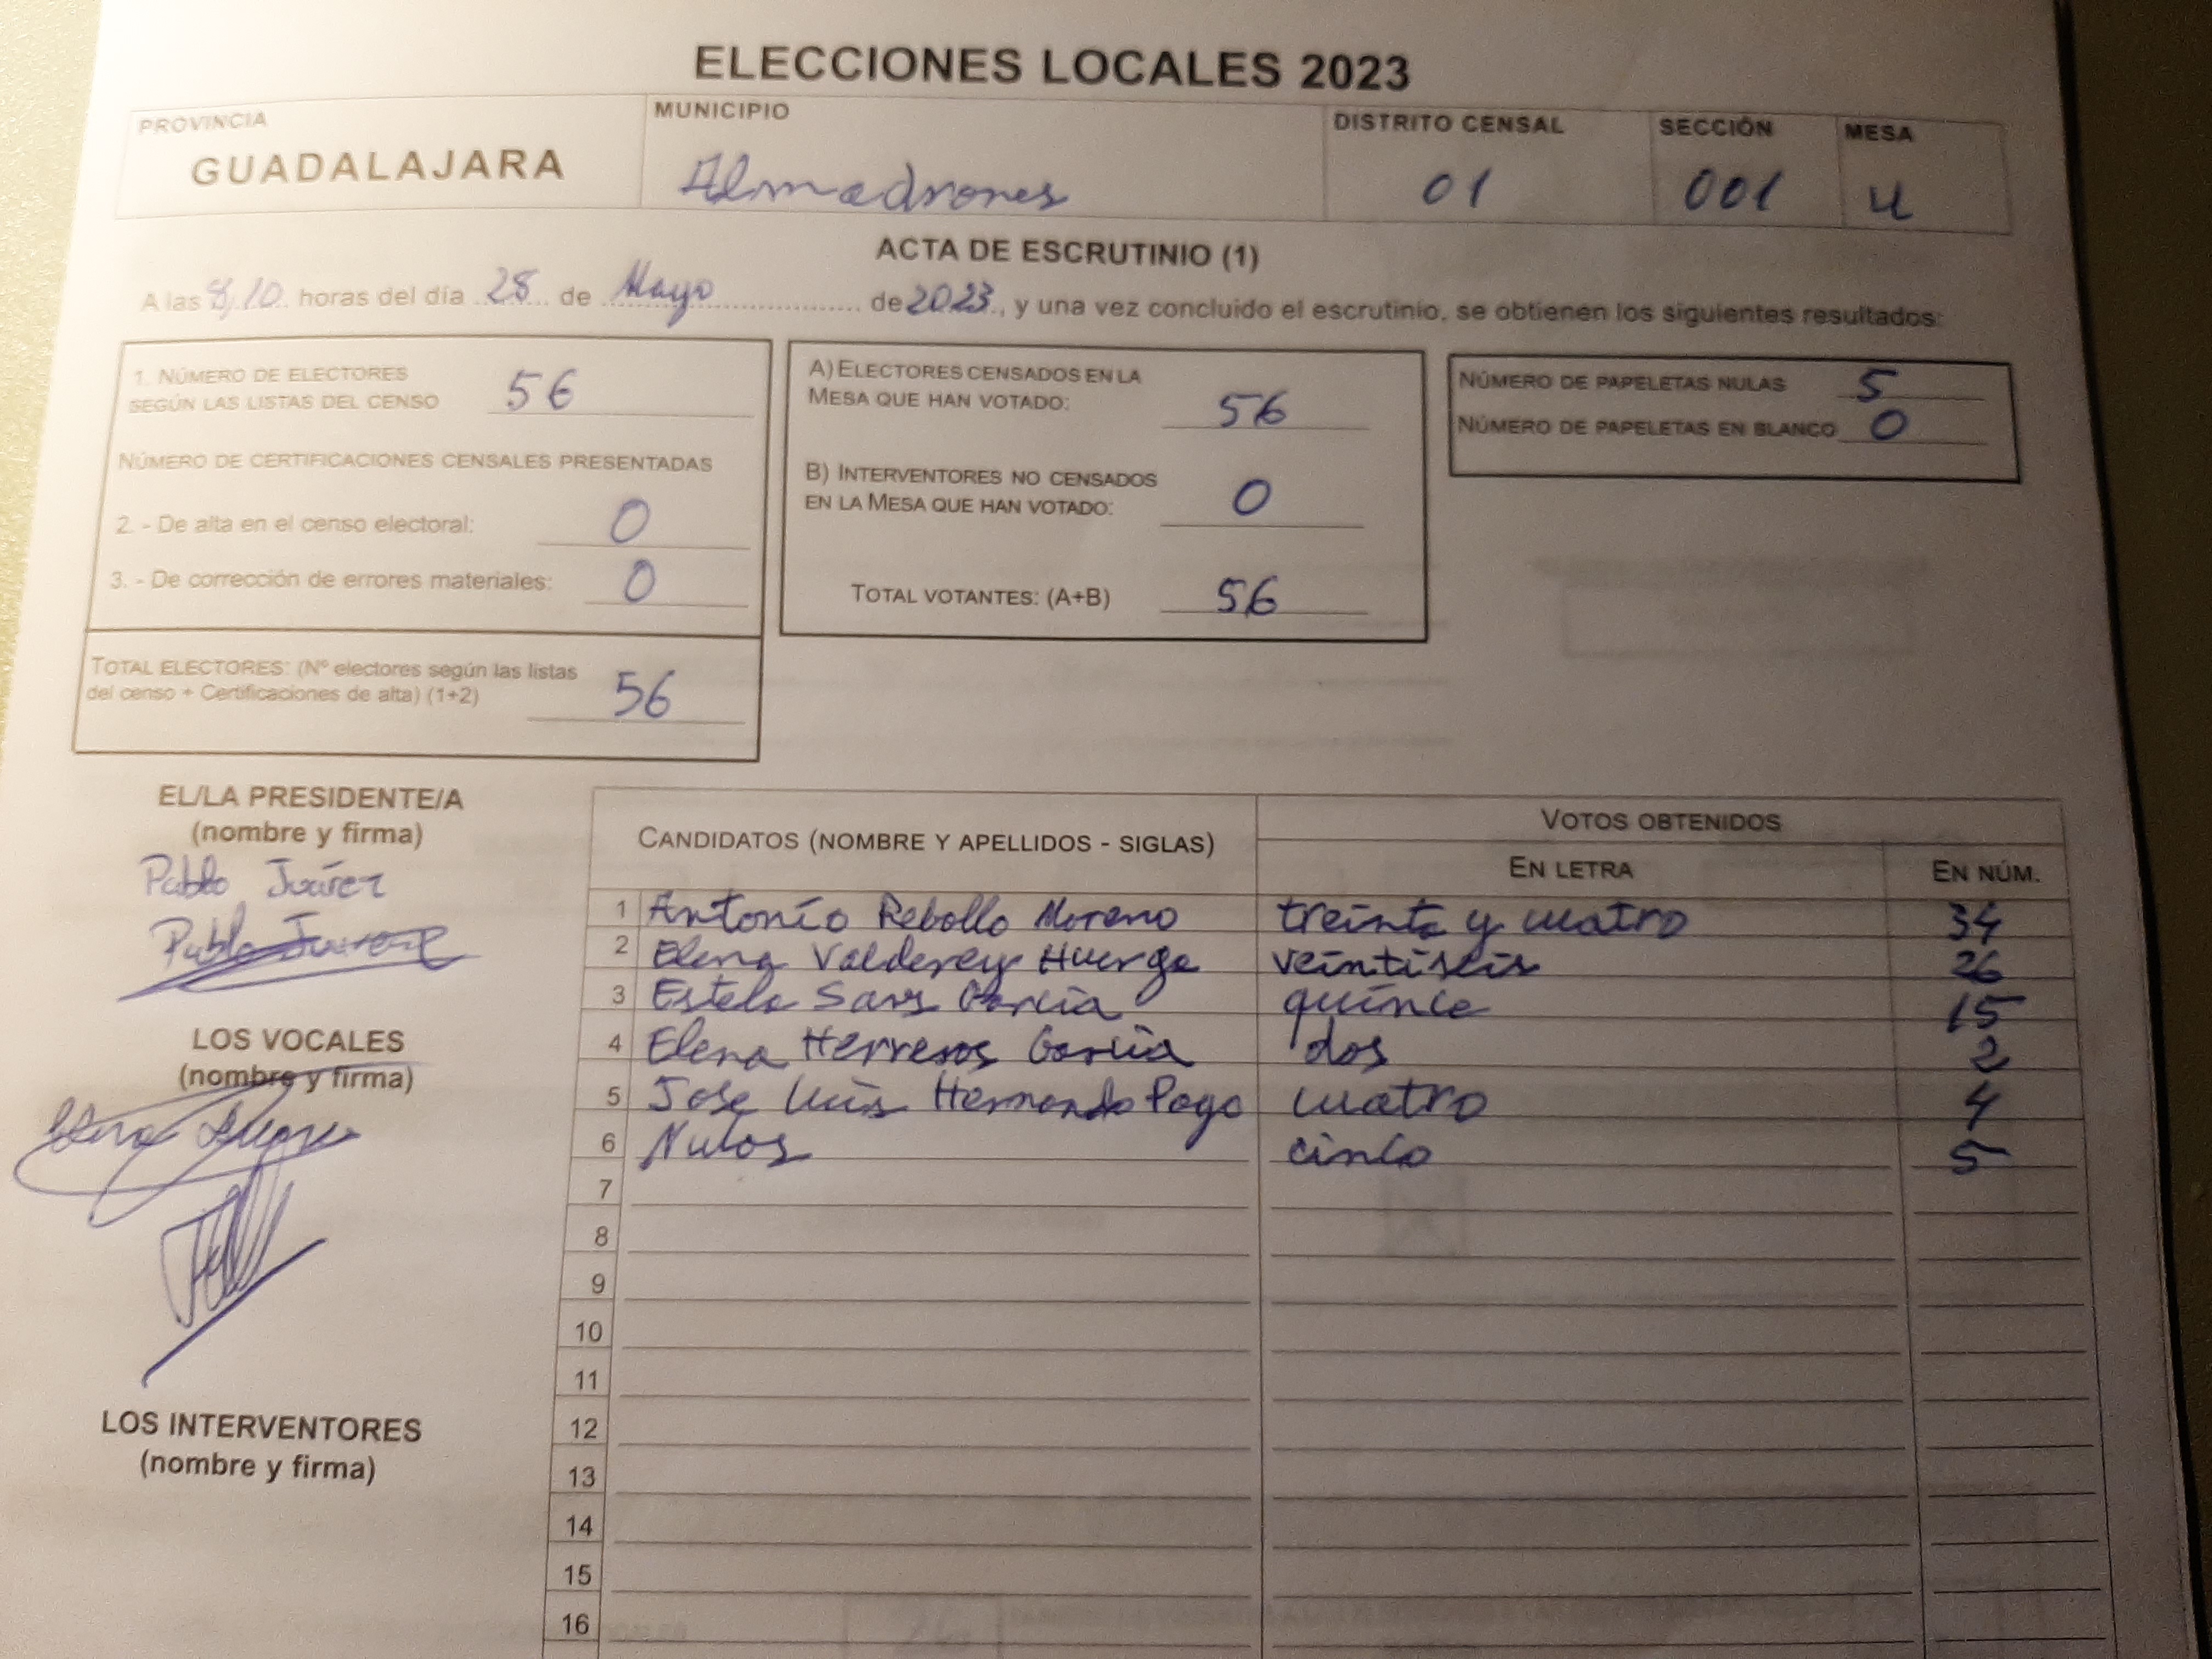 ELECCIONES LOCALES 2023
PROVINCIA
GUADALAJARA
MUNICIPIO
Almadrones
DISTRITO CENSAL
01
SECCIÓN
001
MESA
U
ACTA DE ESCRUTINIO (1)
A las 8,10 horas del día 28 de Mayo de 2023, y una vez concluido el escrutinio, se obtienen los siguientes resultados:
1. NÚMERO DE ELECTORES
SEGÚN LAS LISTAS DEL CENSO 56
NÚMERO DE CERTIFICACIONES CENSALES PRESENTADAS
2. - De alta en el censo electoral: 0
3. - De corrección de errores materiales: 0
TOTAL ELECTORES: (Nº electores según las listas
del censo + Certificaciones de alta) (1+2) 56
A) ELECTORES CENSADOS EN LA
MESA QUE HAN VOTADO: 56
B) INTERVENTORES NO CENSADOS
EN LA MESA QUE HAN VOTADO: 0
TOTAL VOTANTES: (A+B) 56
NÚMERO DE PAPELETAS NULAS 5
NÚMERO DE PAPELETAS EN BLANCO 0
EL/LA PRESIDENTE/A
(nombre y firma)
Pablo Juárez
Pablo Juárez
LOS VOCALES
(nombre y firma)
LOS INTERVENTORES
(nombre y firma)
CANDIDATOS (NOMBRE Y APELLIDOS - SIGLAS)
VOTOS OBTENIDOS
EN LETRA
EN NÚM.
1 Antonio Rebollo Moreno treinta y cuatro 34
2 Elena Valderey Huerga veintiseis 26
3 Estela Sanz García quince 15
4 Elena Herreros García dos 2
5 Jose Luis Hernando cuatro 4
6 Nulos cinco 5
7
8
9
10
11
12
13
14
15
16